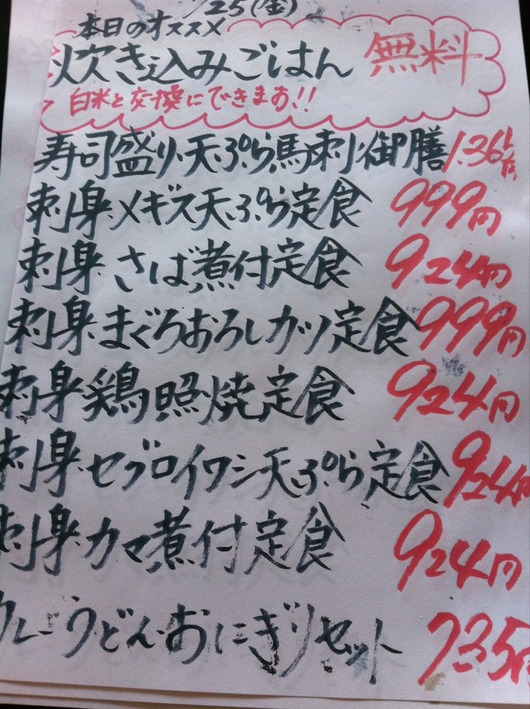 /25(金)
本日のオススメ
炊き込みごはん 無料
白米と交換にできます!!
寿司盛り・天ぷら・馬刺御膳 1365円
刺身・メギス天ぷら定食 999円
刺身・さば煮付定食 924円
刺身・まぐろおろしカツ定食 999円
刺身・鶏照焼定食 924円
刺身・セグロイワシ天ぷら定食 924円
刺身・カマ煮付定食 924円
カレーうどん・おにぎりセット 735円